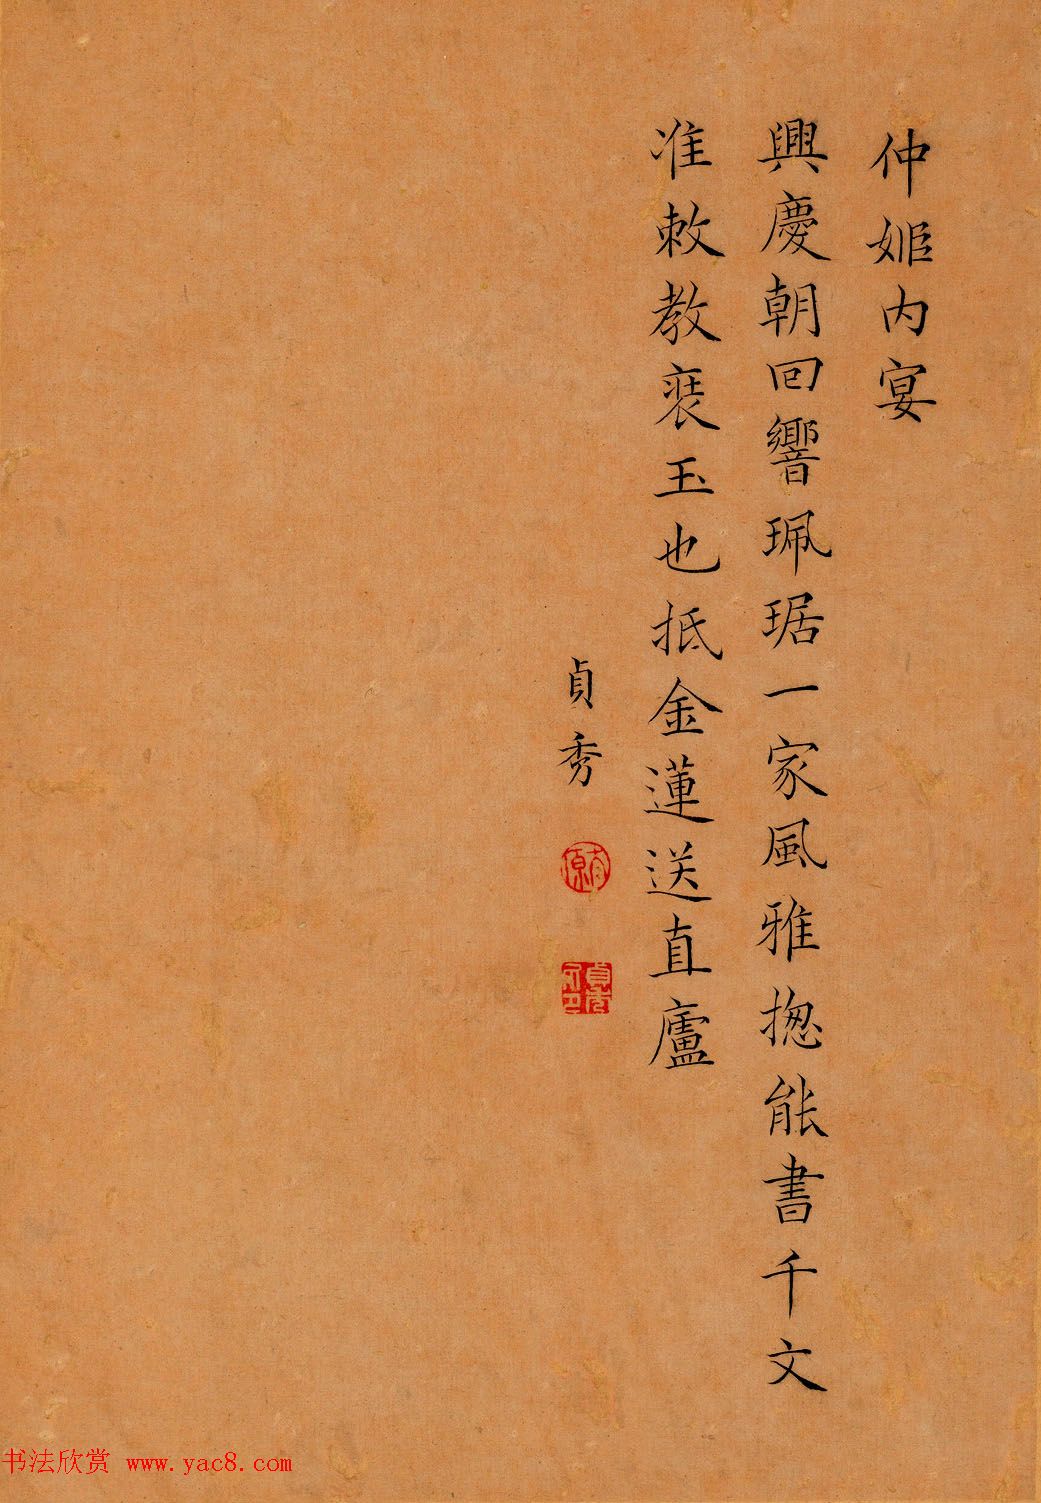 仲姬内宴
興慶朝回響珮琚一家風雅揔能書千文
准敕教裝玉也抵金蓮送直廬
貞秀
书法欣赏 www.yac8.com